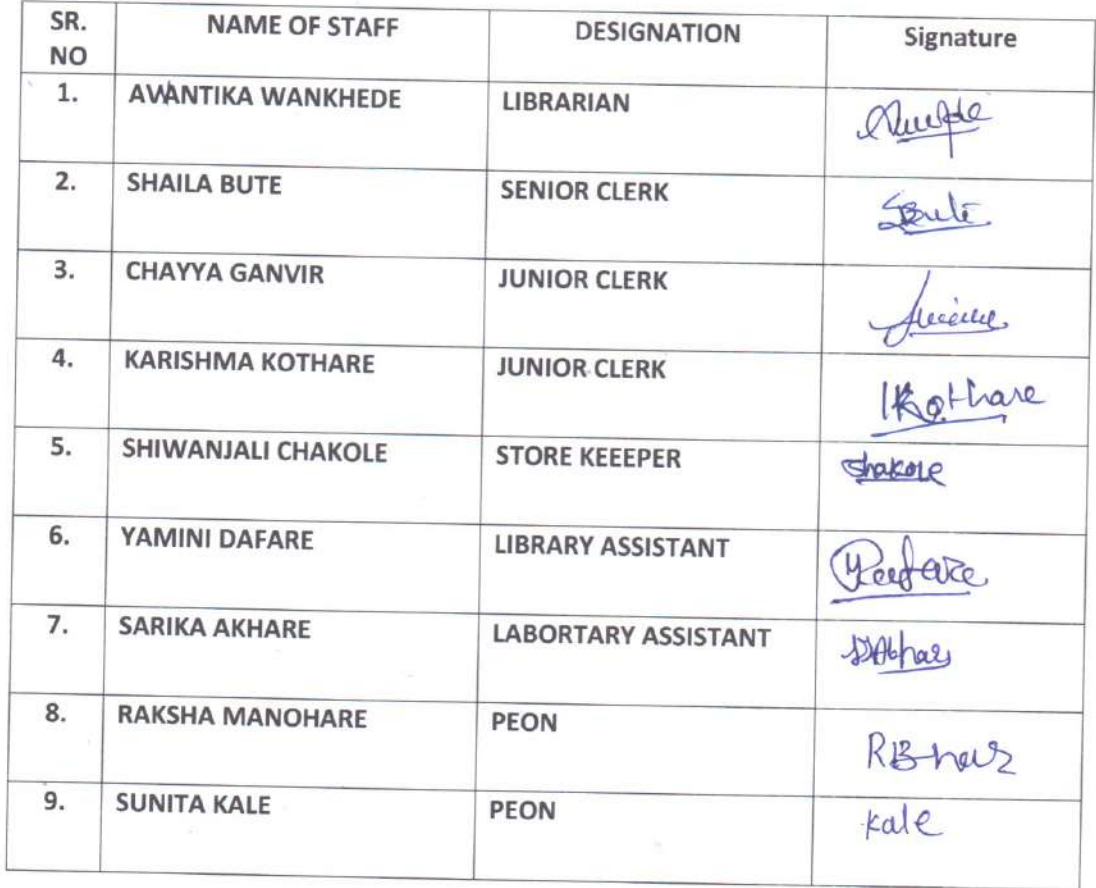 SR. NO NAME OF STAFF DESIGNATION Signature
1. AVANTIKA WANKHEDE LIBRARIAN
2. SHAILA BUTE SENIOR CLERK SBute
3. CHAYYA GANVIR JUNIOR CLERK
4. KARISHMA KOTHARE JUNIOR CLERK KKothare
5. SHIWANJALI CHAKOLE STORE KEEEPER
6. YAMINI DAFARE LIBRARY ASSISTANT YDafare
7. SARIKA AKHARE LABORTARY ASSISTANT
8. RAKSHA MANOHARE PEON
9. SUNITA KALE PEON kale